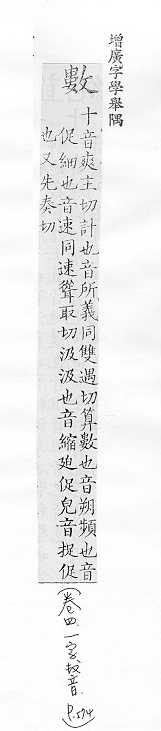 增廣字學舉隅
數
十音爽主切計也音所義同雙遇切算數也音朔頻也音
促細也音速同速聳取切汲汲也音縮廹促皃音捉促
也又先奏切
（卷四.一字數音. P.574）